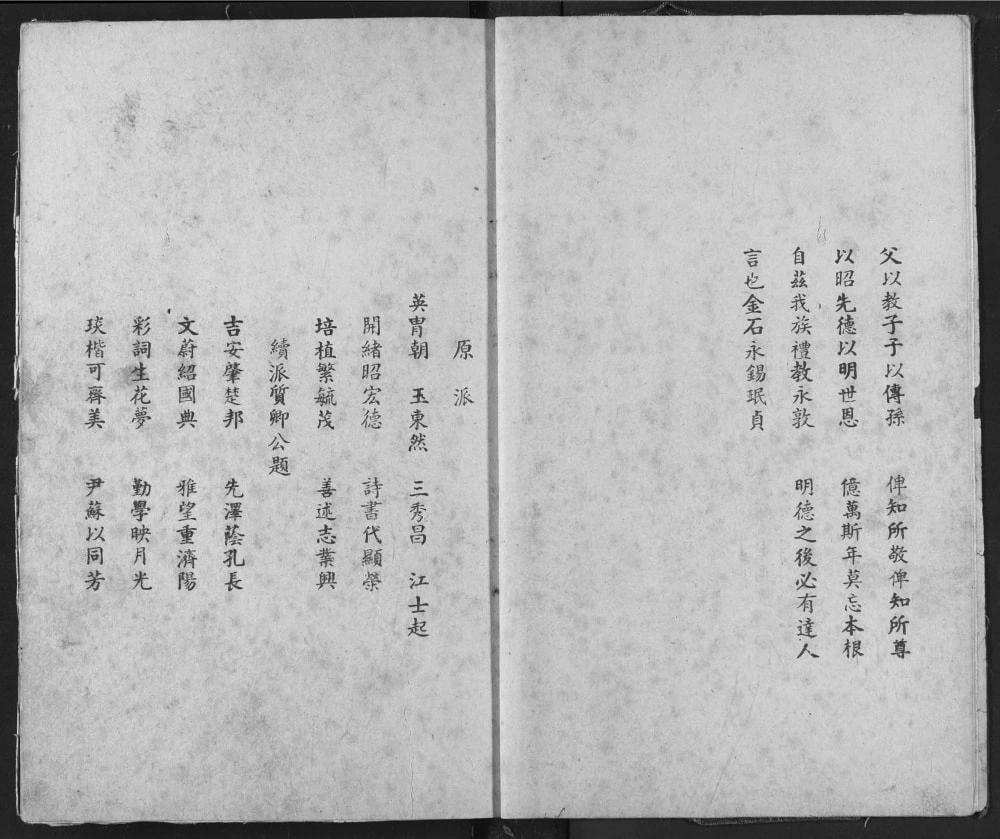 父以教子子以傳孫　俾知所敬俾知所尊
以昭先德以明世恩　億萬斯年莫忘本根
自茲我族禮教永敦　明德之後必有達人
言也金石永錫珉貞
原派
英胄朝　玉東然　三秀昌　江士起
開緒昭宏德　詩書代顯榮
培植繁毓茂　善述志業興
續派質卿公題
吉安肇楚邦　先澤蔭孔長
文蔚紹國典　雅望重濟陽
彩詞生花夢　勤學映月光
琰楷可齊美　尹蘇以同芳